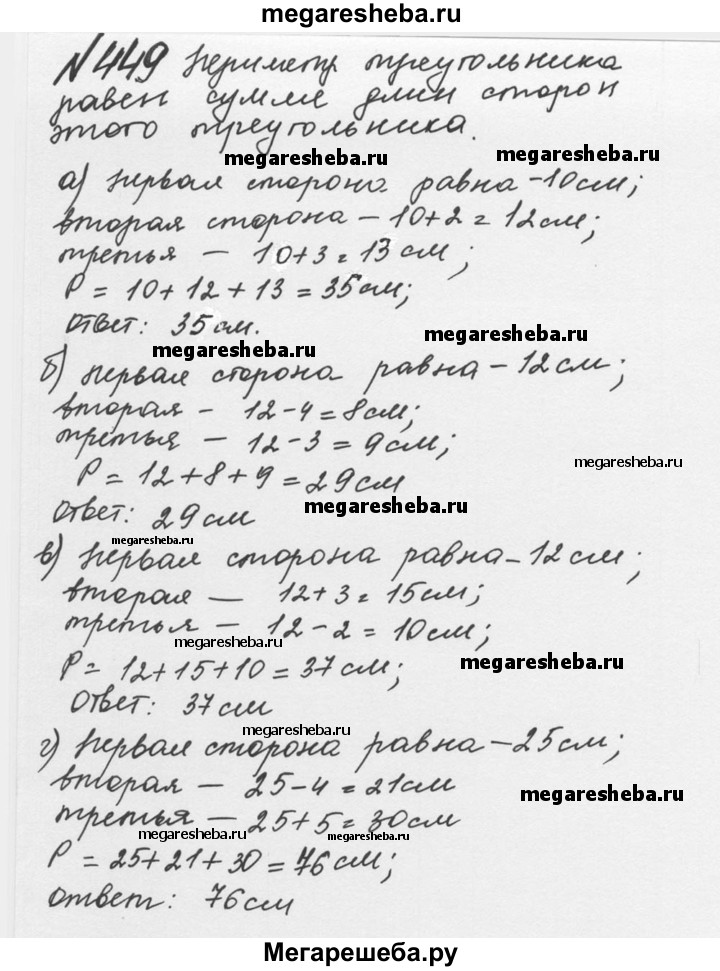 megaresheba.ru
№449 Периметр треугольника
равен сумме длин сторон
этого треугольника.
megaresheba.ru megaresheba.ru
а) первая сторона равна – 10 см;
вторая сторона – 10+2 = 12 см;
третья – 10+3 = 13 см;
P = 10 + 12 + 13 = 35 см;
Ответ: 35 см.
megaresheba.ru
megaresheba.ru
б) первая сторона равна – 12 см;
вторая – 12-4 = 8 см;
третья – 12-3 = 9 см;
megaresheba.ru
P = 12 + 8 + 9 = 29 см
Ответ: 29 см
megaresheba.ru
megaresheba.ru
в) первая сторона равна – 12 см;
вторая – 12+3 = 15 см;
третья – 12-2 = 10 см;
megaresheba.ru
megaresheba.ru
P = 12+15+10 = 37 см;
Ответ: 37 см
megaresheba.ru
г) первая сторона равна – 25 см;
вторая – 25-4 = 21 см
megaresheba.ru
третья – 25+5 = 30 см
megaresheba.ru megaresheba.ru
P = 25+21+30 = 76 см;
ответ: 76 см
Мегарешеба.ру